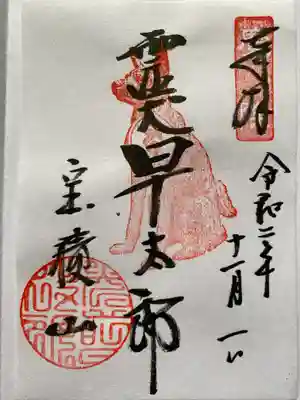 奉拝
令和二年十一月一日
霊犬早太郎
宝積山